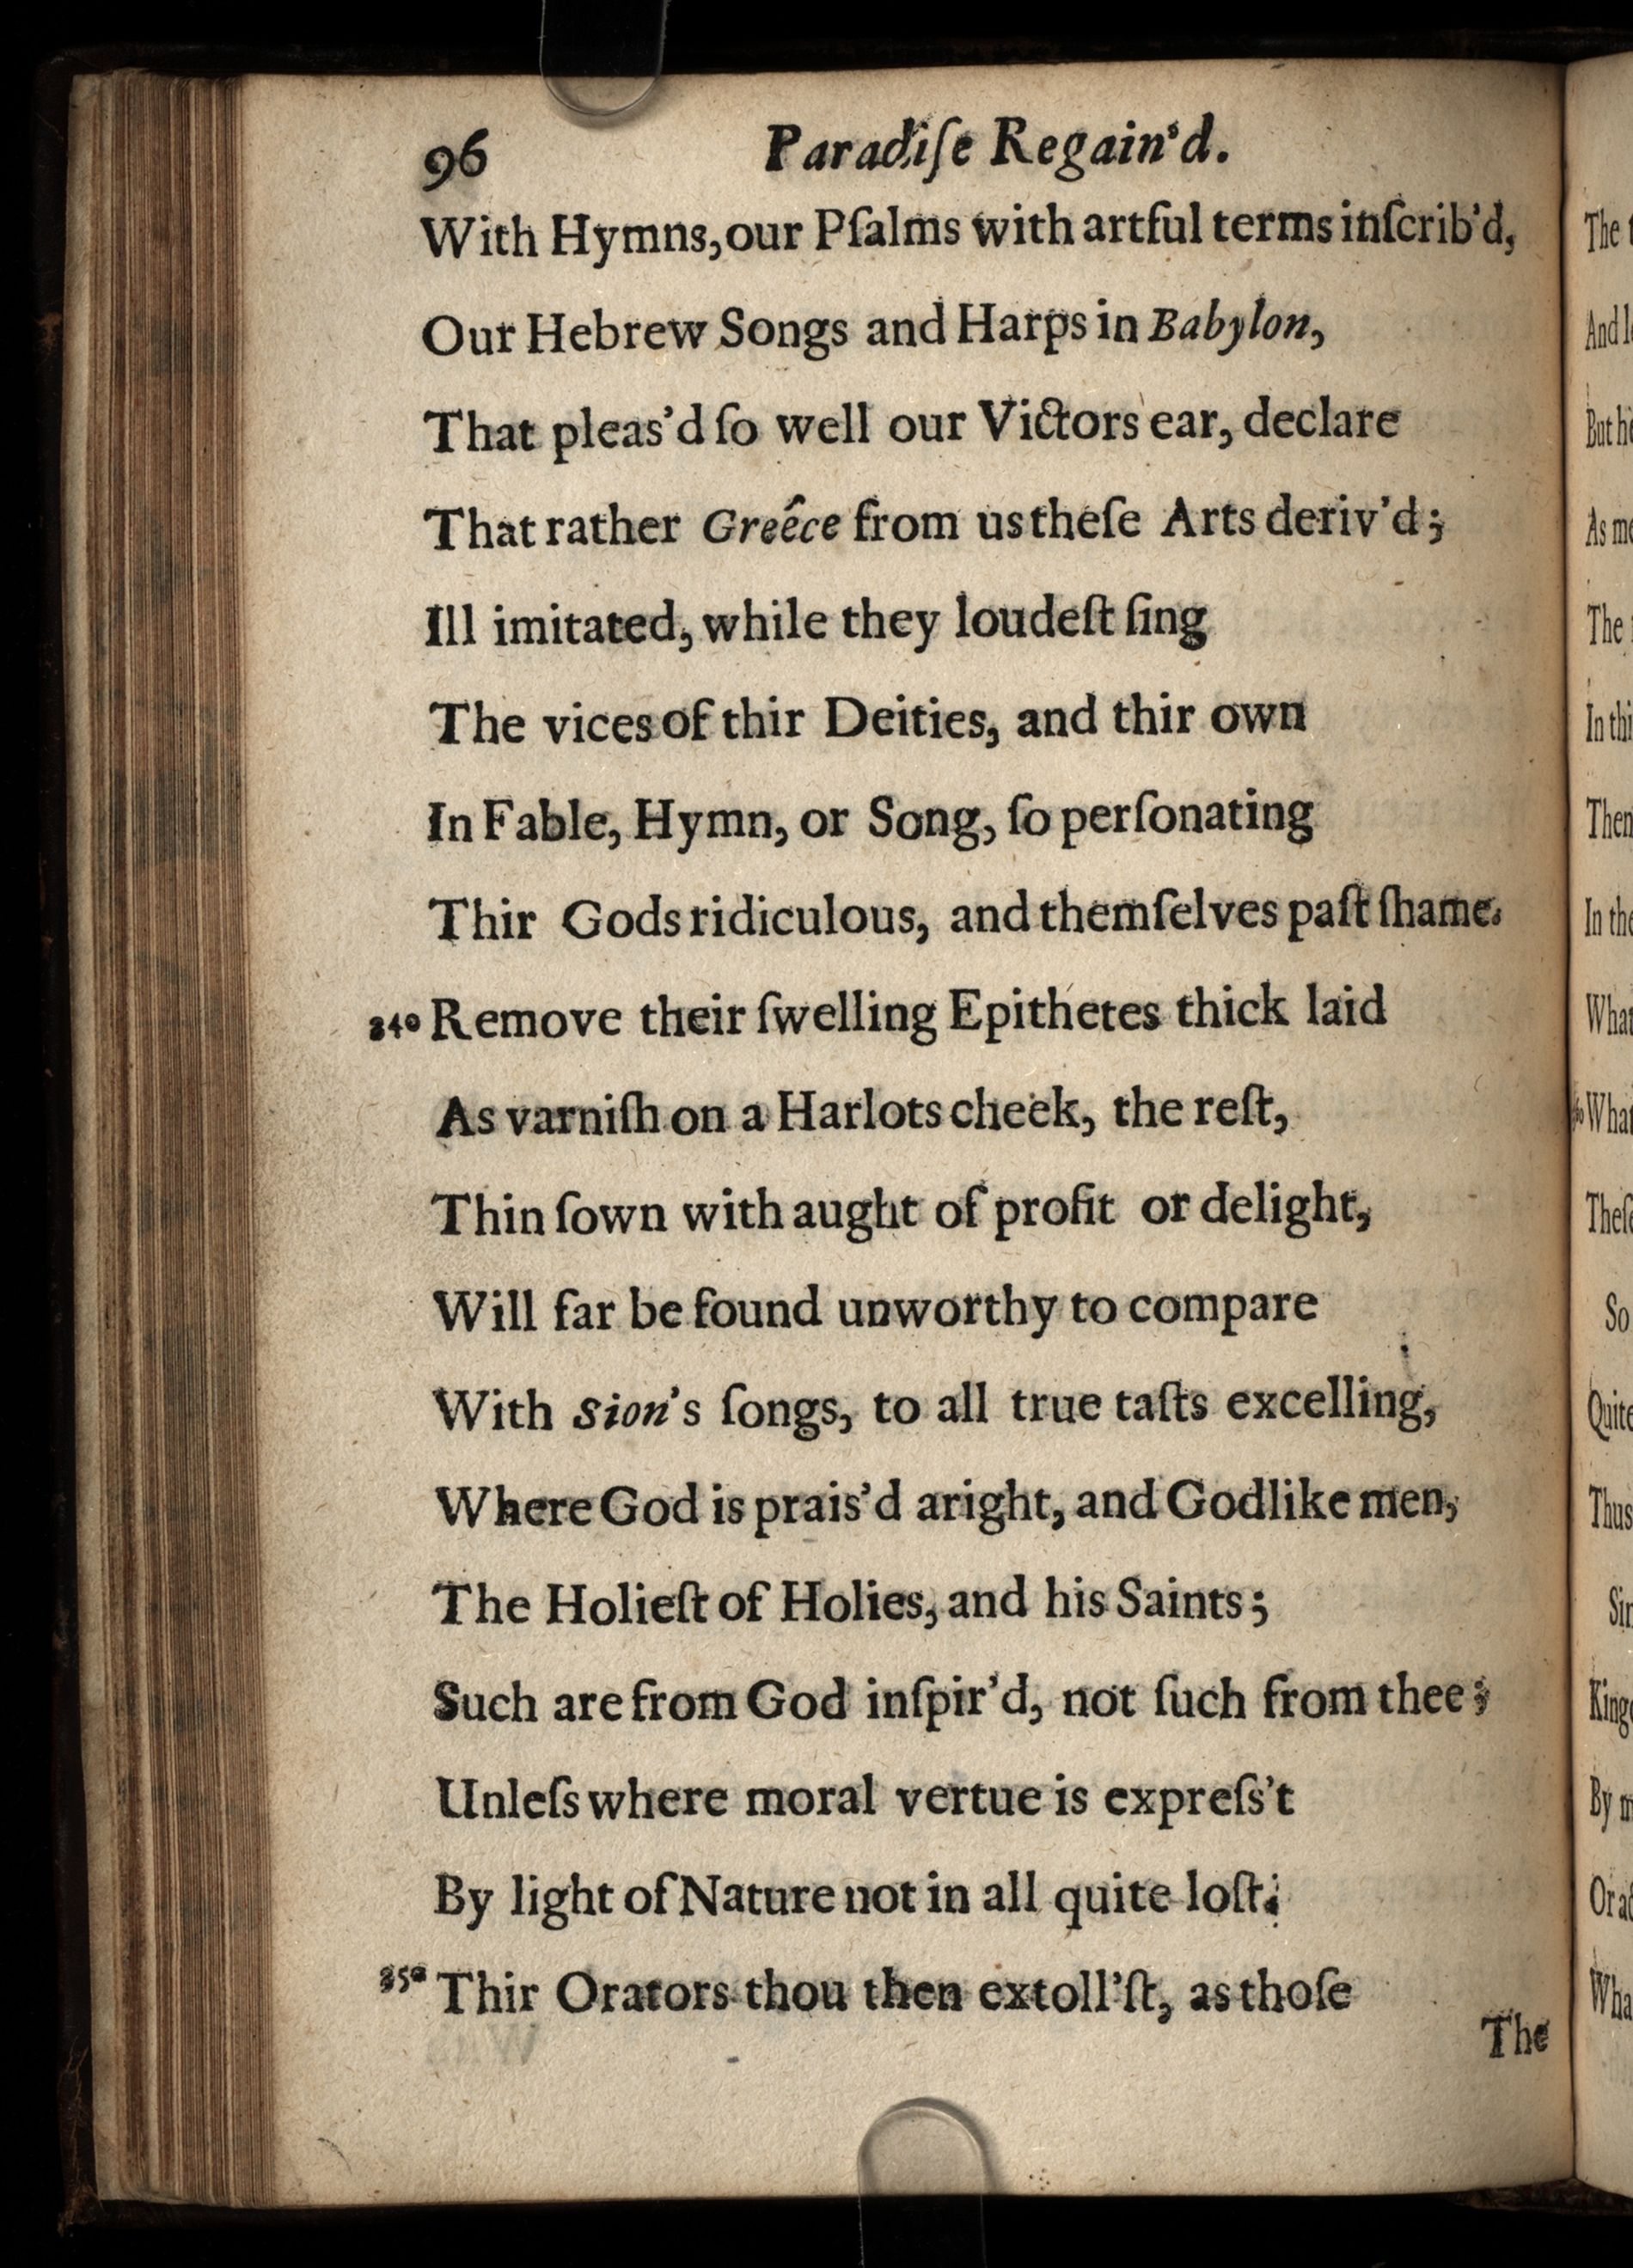 96 Paradiſe Regain'd.
With Hymns, our Pſalms with artful terms inſcrib'd,
Our Hebrew Songs and Harps in Babylon,
That pleas'd ſo well our Victors ear, declare
That rather Greêce from us theſe Arts deriv'd;
Ill imitated, while they loudeſt ſing
The vices of thir Deities, and thir own
In Fable, Hymn, or Song, ſo perſonating
Thir Gods ridiculous, and themſelves paſt ſhame.
340 Remove their ſwelling Epithetes thick laid
As varniſh on a Harlots cheek, the reſt,
Thin ſown with aught of profit or delight,
Will far be found unworthy to compare
With Sion's ſongs, to all true taſts excelling,
Where God is prais'd aright, and Godlike men,
The Holieſt of Holies, and his Saints;
Such are from God inſpir'd, not ſuch from thee;
Unleſs where moral vertue is expreſs't
By light of Nature not in all quite loſt.
350 Thir Orators thou then extoll'ſt, as thoſe
The
The
And
But
As
The
In
In
What
So
Quite
Thus
By
Or